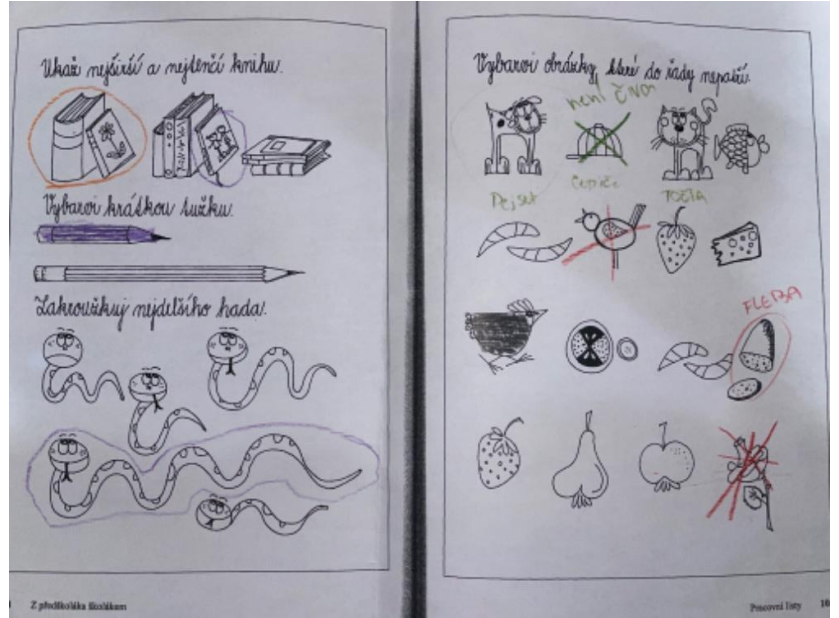 Ukaž nejširší a nejtenčí knihu.
Vybarvi krátkou tužku.
Zakroužkuj nejdelšího hada.
Z předškoláka školákem
Vybarvi obrázky, které do řady nepatří.
není
FLEBA
Pracovní listy